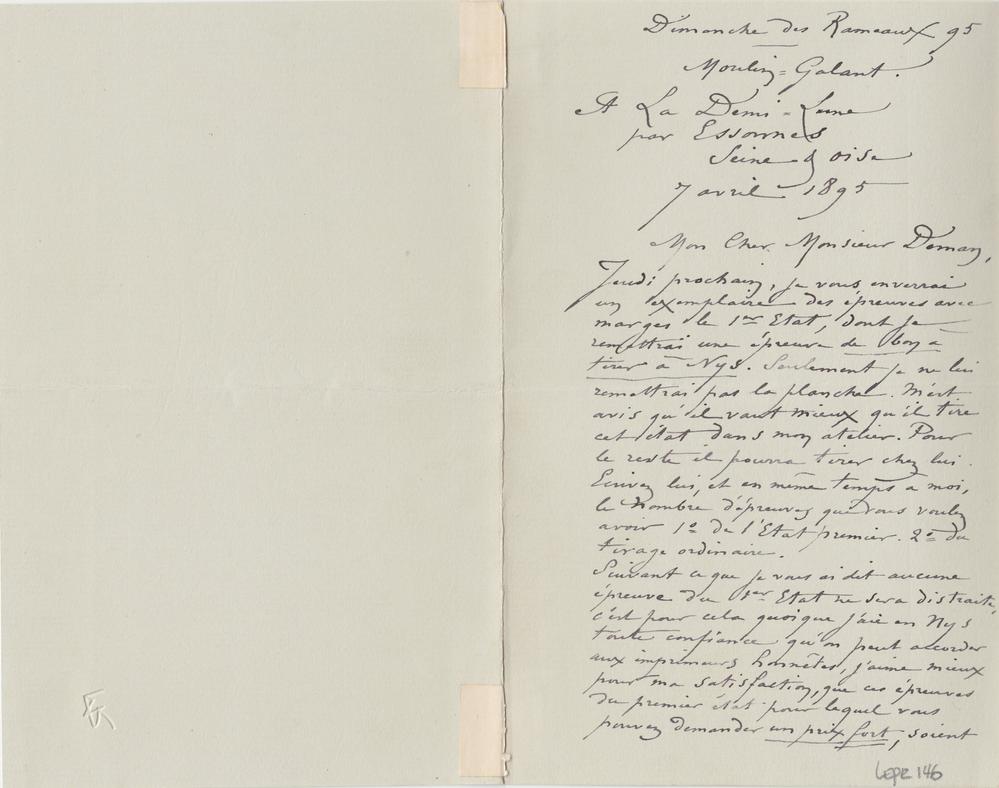 Dimanche des Rameaux 95
Moulin=Galant.
A La Demi=Lune
par Essonnes
Seine & oise
7 avril 1895
Mon Cher Monsieur Deman,
Jeudi prochain, je vous enverrai
un exemplaire des épreuves avec
marges le 1er Etat, dont je
remettrai une épreuve de bon à
tirer à Nys. Seulement je ne lui
remettrai pas la planche. M'est
avis qu'il vaut mieux qu'il tire
cet état dans mon atelier. Pour
le reste il pourra tirer chez lui.
Ecrivez lui, et en même temps a moi,
le Nombre d'épreuves que vous voulez
avoir 1o de l'Etat premier. 2o du
tirage ordinaire.
Suivant ce que je vous ai dit aucune
épreuve du 1er Etat ne sera distraite,
c'est pour cela quoique j'aie en Nys
toute confiance qu'on peut accorder
aux imprimeurs honnêtes, j'aime mieux
pour ma satisfaction, que ces épreuves
du premier état pour lequel vous
pouvez demander un prix fort, soient
LEPR 146